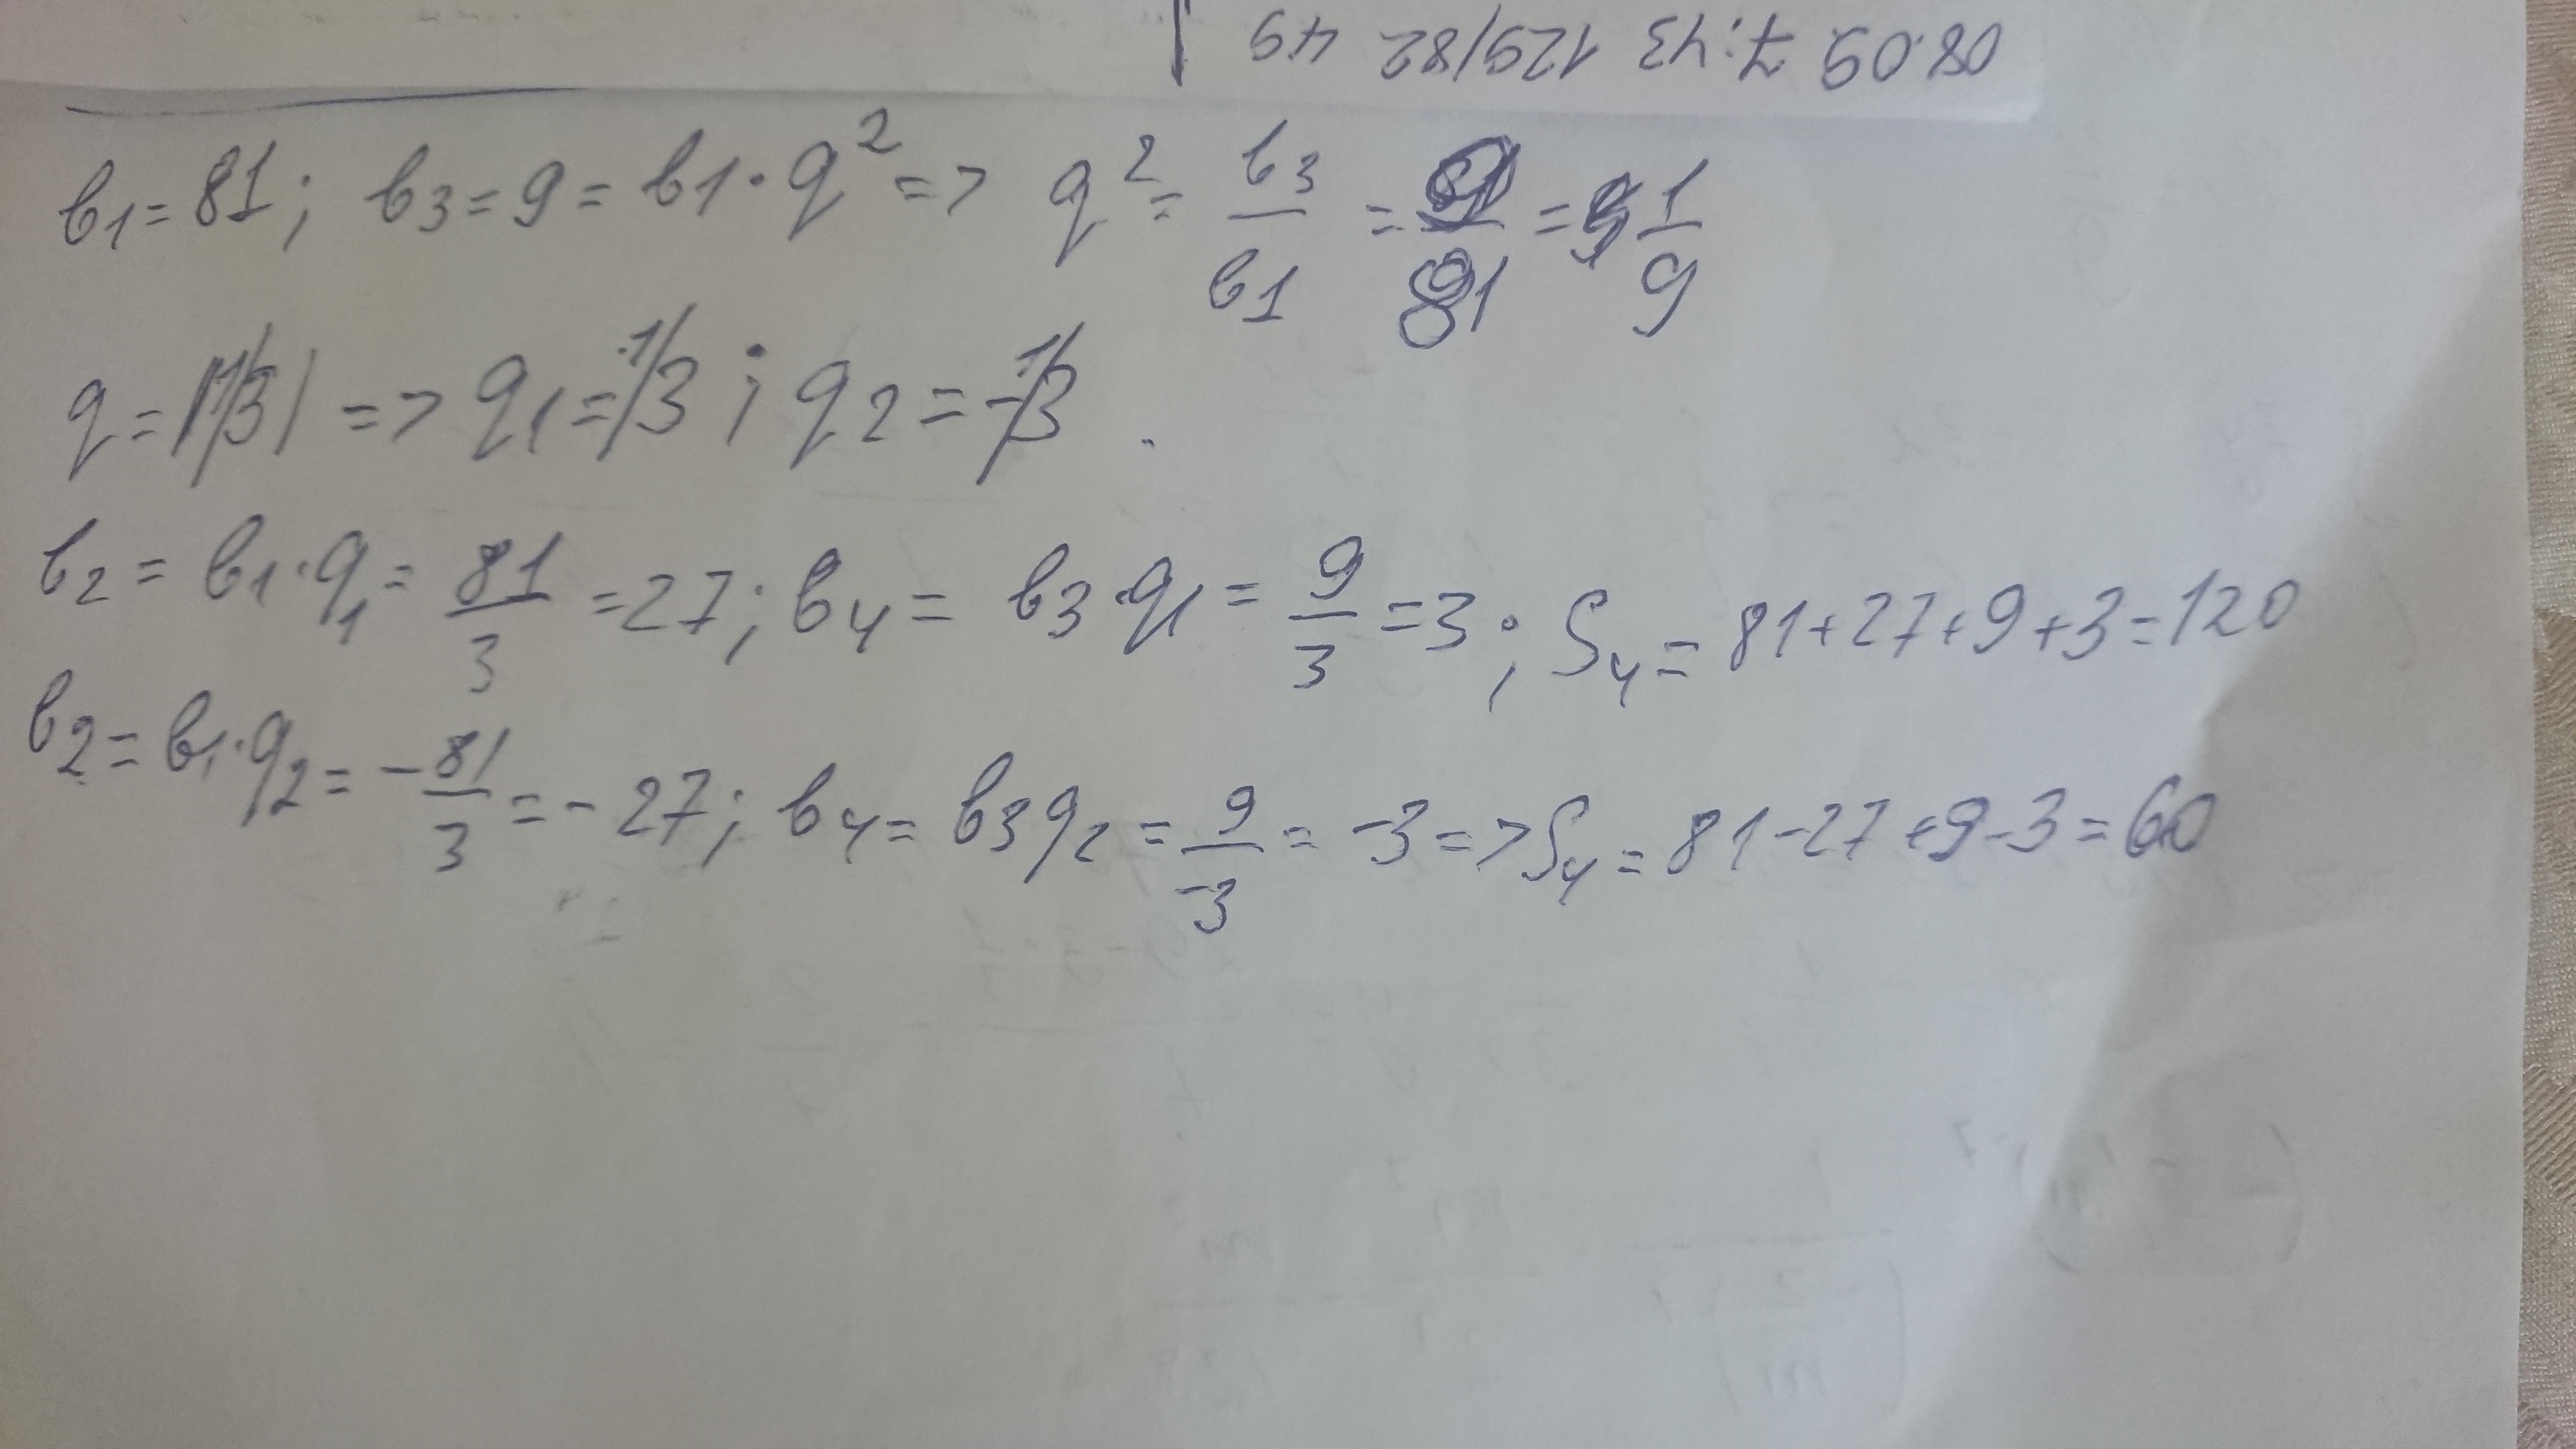 08.09 7:43 129/82 49
b1=81; b3=9=b1·q²=> q²= b3/b1 = 9/81 = 1/9
q=|1/3| => q1=1/3; q2=-1/3.
b2=b1·q1= 81/3 =27; b4= b3·q1= 9/3 =3; S4= 81+27+9+3=120
b2=b1·q2= -81/3 =-27; b4= b3q2= 9/-3 = -3=>S4=81-27+9-3=60